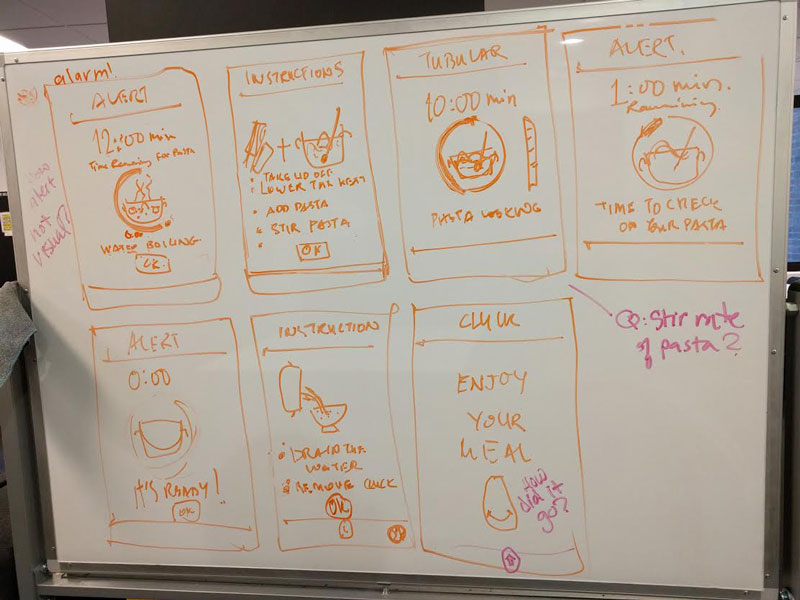 alarm!
ALERT
12:00 min
Time Remaining For Pasta
WATER BOILING
OK
alert
not
visual?
INSTRUCTIONS
+
• TAKE LID OFF
• LOWER THE HEAT
• ADD PASTA
• STIR PASTA
•
OK
TUBULAR
10:00 min
PASTA COOKING
ALERT.
1:00 min.
Remaining
TIME TO CHECK
ON YOUR PASTA
Q: Stir rate
of pasta?
ALERT
0:00
IT'S READY!
OK
INSTRUCTION
• DRAIN THE
WATER
• REMOVE CLUCK
OK
CLUCK
ENJOY
YOUR
MEAL
How
did it
go?